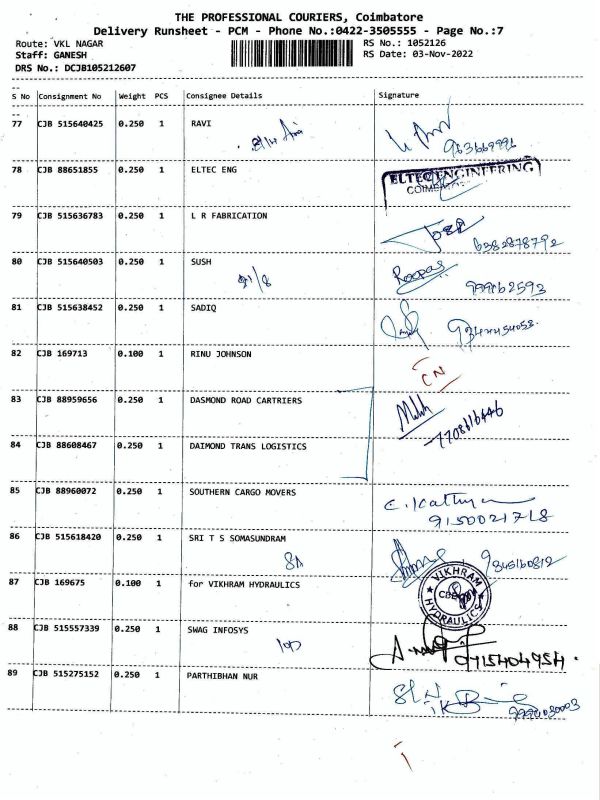 THE PROFESSIONAL COURIERS, Coimbatore
Delivery Runsheet - PCM - Phone No.:0422-3505555 - Page No.:7
Route: VKL NAGAR RS No.: 1052126
Staff: GANESH RS Date: 03-Nov-2022
DRS No.: DCJB105212607
S No Consignment No Weight PCS Consignee Details Signature
77 CJB 515640425 0.250 1 RAVI
78 CJB 88651855 0.250 1 ELTEC ENG ELTEC ENGINEERING
79 CJB 515636783 0.250 1 L R FABRICATION
6382878792
80 CJB 515640503 0.250 1 SUSH Roopas
81 CJB 515638452 0.250 1 SADIQ
82 CJB 169713 0.100 1 RINU JOHNSON CN
83 CJB 88959656 0.250 1 DASMOND ROAD CARTRIERS
7708616446
84 CJB 88608467 0.250 1 DAIMOND TRANS LOGISTICS
85 CJB 88960072 0.250 1 SOUTHERN CARGO MOVERS
9150021718
86 CJB 515618420 0.250 1 SRI T S SOMASUNDRAM
9845160812
87 CJB 169675 0.100 1 for VIKHRAM HYDRAULICS VIKHRAM HYDRAULICS
88 CJB 515557339 0.250 1 SWAG INFOSYS
9715404954
89 CJB 515275152 0.250 1 PARTHIBHAN NUR